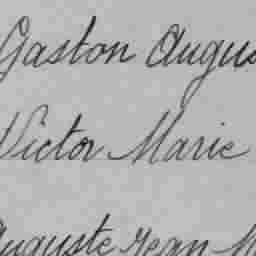 Gaston Augus
Victor Marie
Auguste Jean M